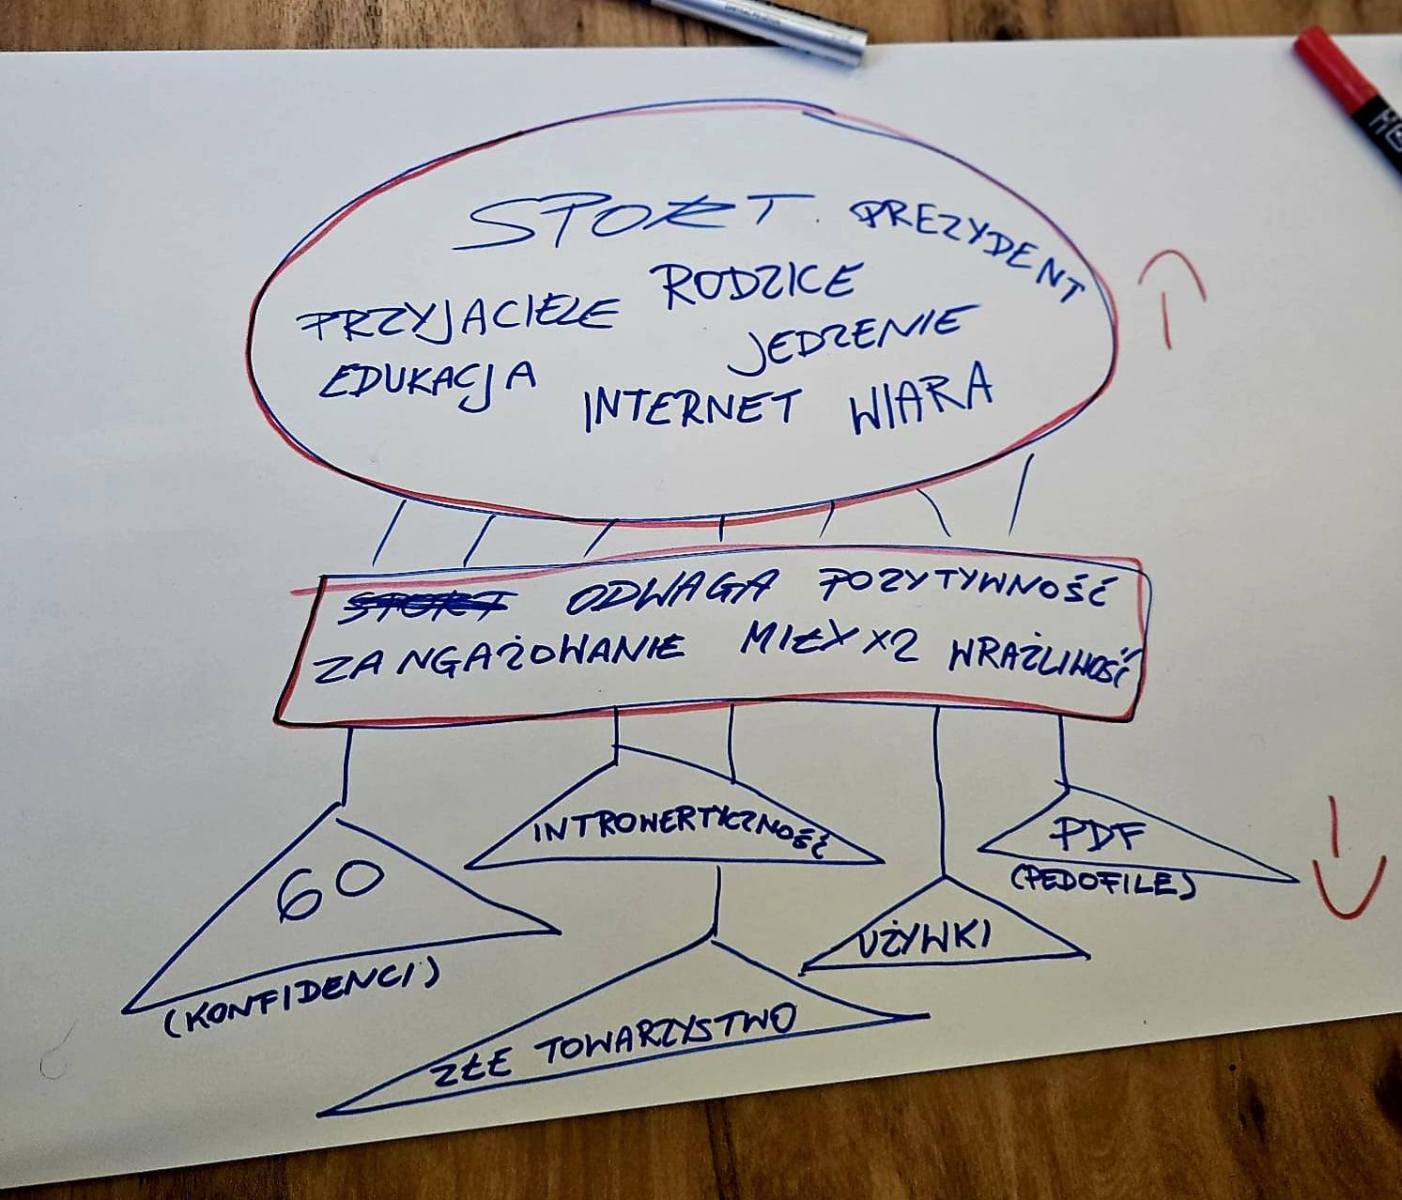 SPORT PREZYDENT
PRZYJACIELE RODZICE
EDUKACJA JEDZENIE
INTERNET WIARA
SPORT ODWAGA POZYTYWNOŚĆ
ZANGAŻOWANIE MIŁY X2 WRAŻLIWOŚĆ
INTROWERTYCZNOŚĆ
PDF
(PEDOFILE)
60
(KONFIDENCI)
UŻYWKI
ZŁE TOWARZYSTWO